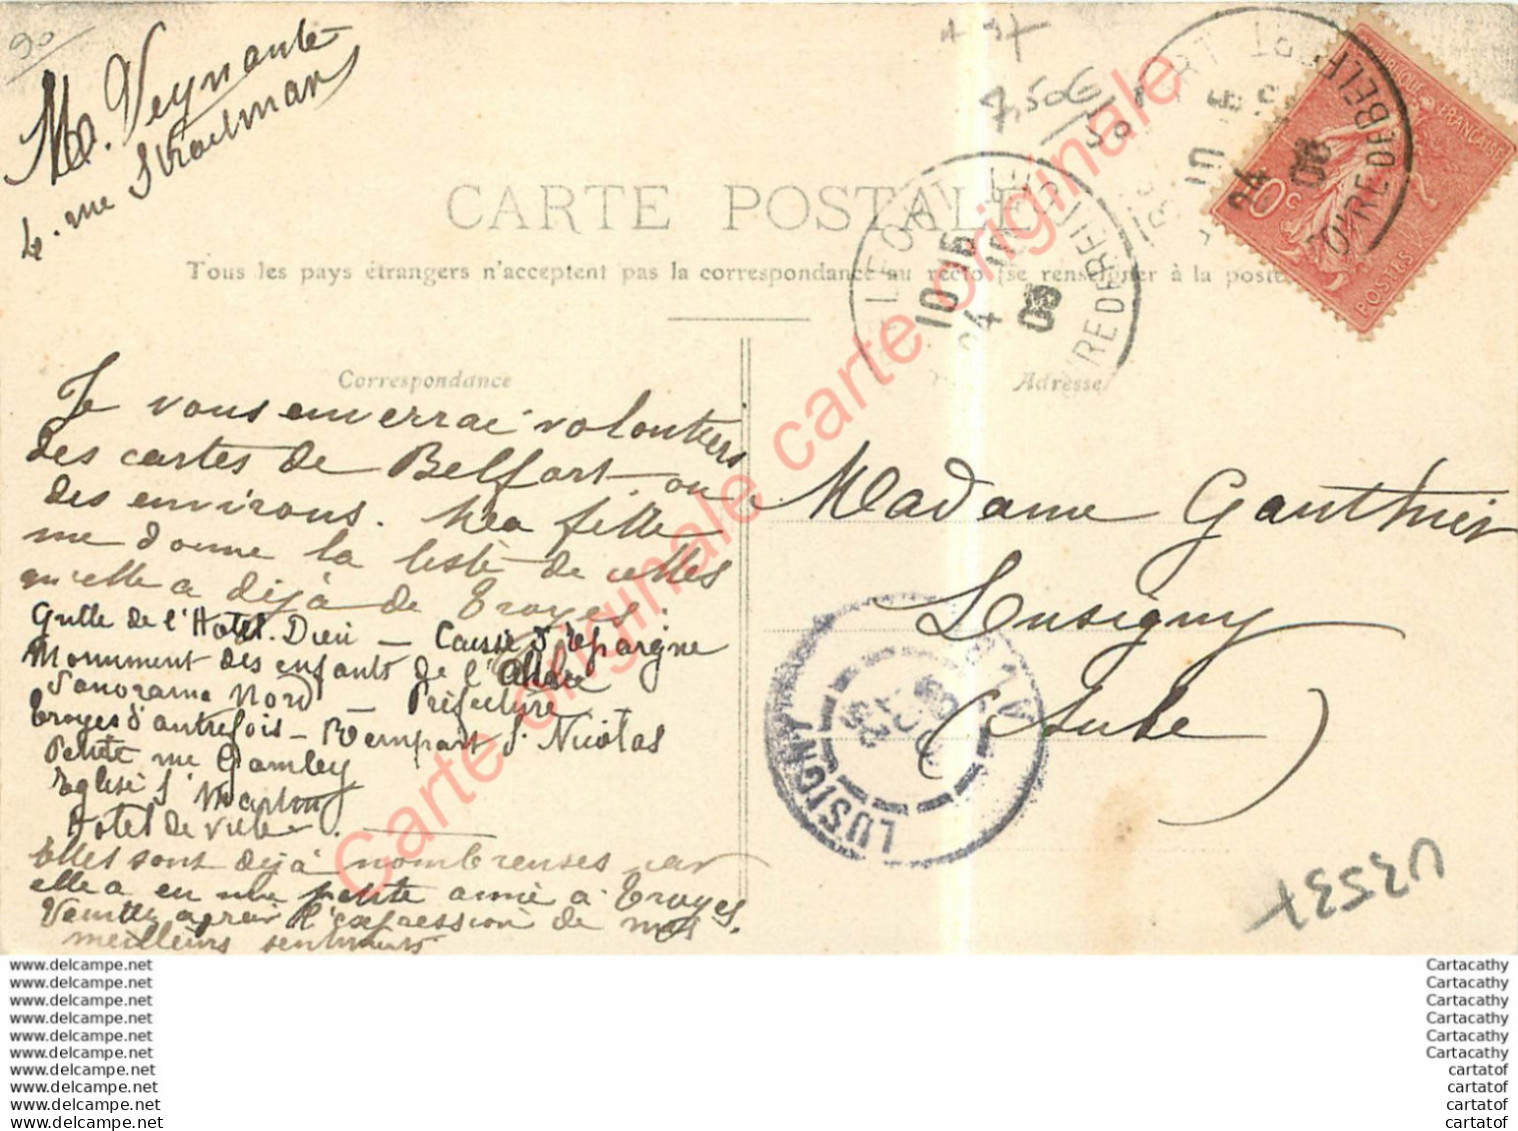 90
M. Veynante
4. rue Strolman
7,50€
CARTE POSTALE
Tous les pays étrangers n'acceptent pas la correspondance au recto (se renseigner à la poste
Correspondance
Je vous enverrai volontiers
des cartes de Belfort ou
des environs. Ma fille
me donne la liste de celles
qu'elle a déjà de Troyes.
Grille de l'Hotel. Dieu — Caisse d'Epargne
Monument des enfants de l'Aube
Panorama Nord — Préfecture
Troyes d'autrefois — Rempart St Nicolas
Petite rue Gambey
Eglise St Martin
Hotel de ville — .
Elles sont déjà nombreuses car
elle a eu une petite amie à Troyes.
Veuillez agréer l'expression de mes
meilleurs sentiments
Adresse
Madame Gauthier
Lusigny
(Aube)
10 15
24
08
RE DE BELFORT
10
24
08
OIRE DE BELFORT
10c
POSTES
LUSIGNY
25
U3537
Carte originale carte originale
Carte originale
www.delcampe.net
www.delcampe.net
www.delcampe.net
www.delcampe.net
www.delcampe.net
www.delcampe.net
www.delcampe.net
www.delcampe.net
www.delcampe.net
www.delcampe.net
Cartacathy
Cartacathy
Cartacathy
Cartacathy
Cartacathy
Cartacathy
cartatof
cartatof
cartatof
cartatof